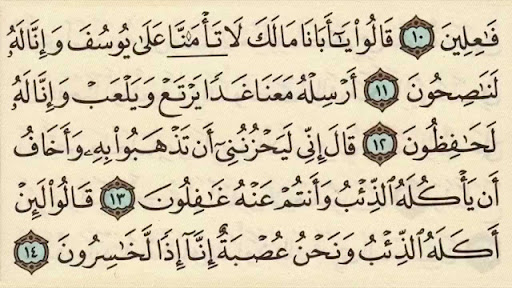 فَٰعِلِينَ ١٠ قَالُوا۟ يَٰٓأَبَانَا مَا لَكَ لَا تَأْمَ۫نَّا عَلَىٰ يُوسُفَ وَإِنَّا لَهُۥ
لَنَٰصِحُونَ ١١ أَرْسِلْهُ مَعَنَا غَدًا يَرْتَعْ وَيَلْعَبْ وَإِنَّا لَهُۥ
لَحَٰفِظُونَ ١٢ قَالَ إِنِّى لَيَحْزُنُنِىٓ أَن تَذْهَبُوا۟ بِهِۦ وَأَخَافُ
أَن يَأْكُلَهُ ٱلذِّئْبُ وَأَنتُمْ عَنْهُ غَٰفِلُونَ ١٣ قَالُوا۟ لَئِنْ
أَكَلَهُ ٱلذِّئْبُ وَنَحْنُ عُصْبَةٌ إِنَّآ إِذًا لَّخَٰسِرُونَ ١٤